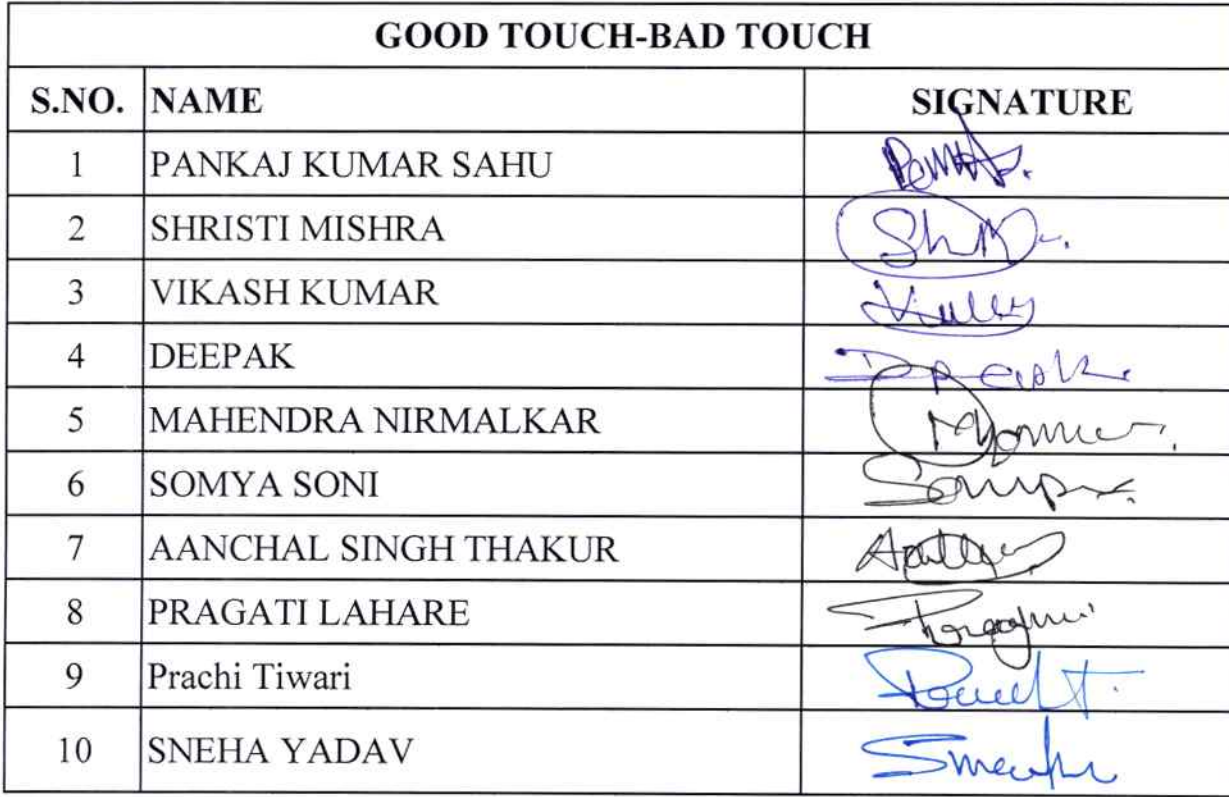 GOOD TOUCH-BAD TOUCH
S.NO. NAME SIGNATURE
1 PANKAJ KUMAR SAHU
2 SHRISTI MISHRA
3 VIKASH KUMAR
4 DEEPAK Deepak
5 MAHENDRA NIRMALKAR
6 SOMYA SONI
7 AANCHAL SINGH THAKUR
8 PRAGATI LAHARE
9 Prachi Tiwari
10 SNEHA YADAV